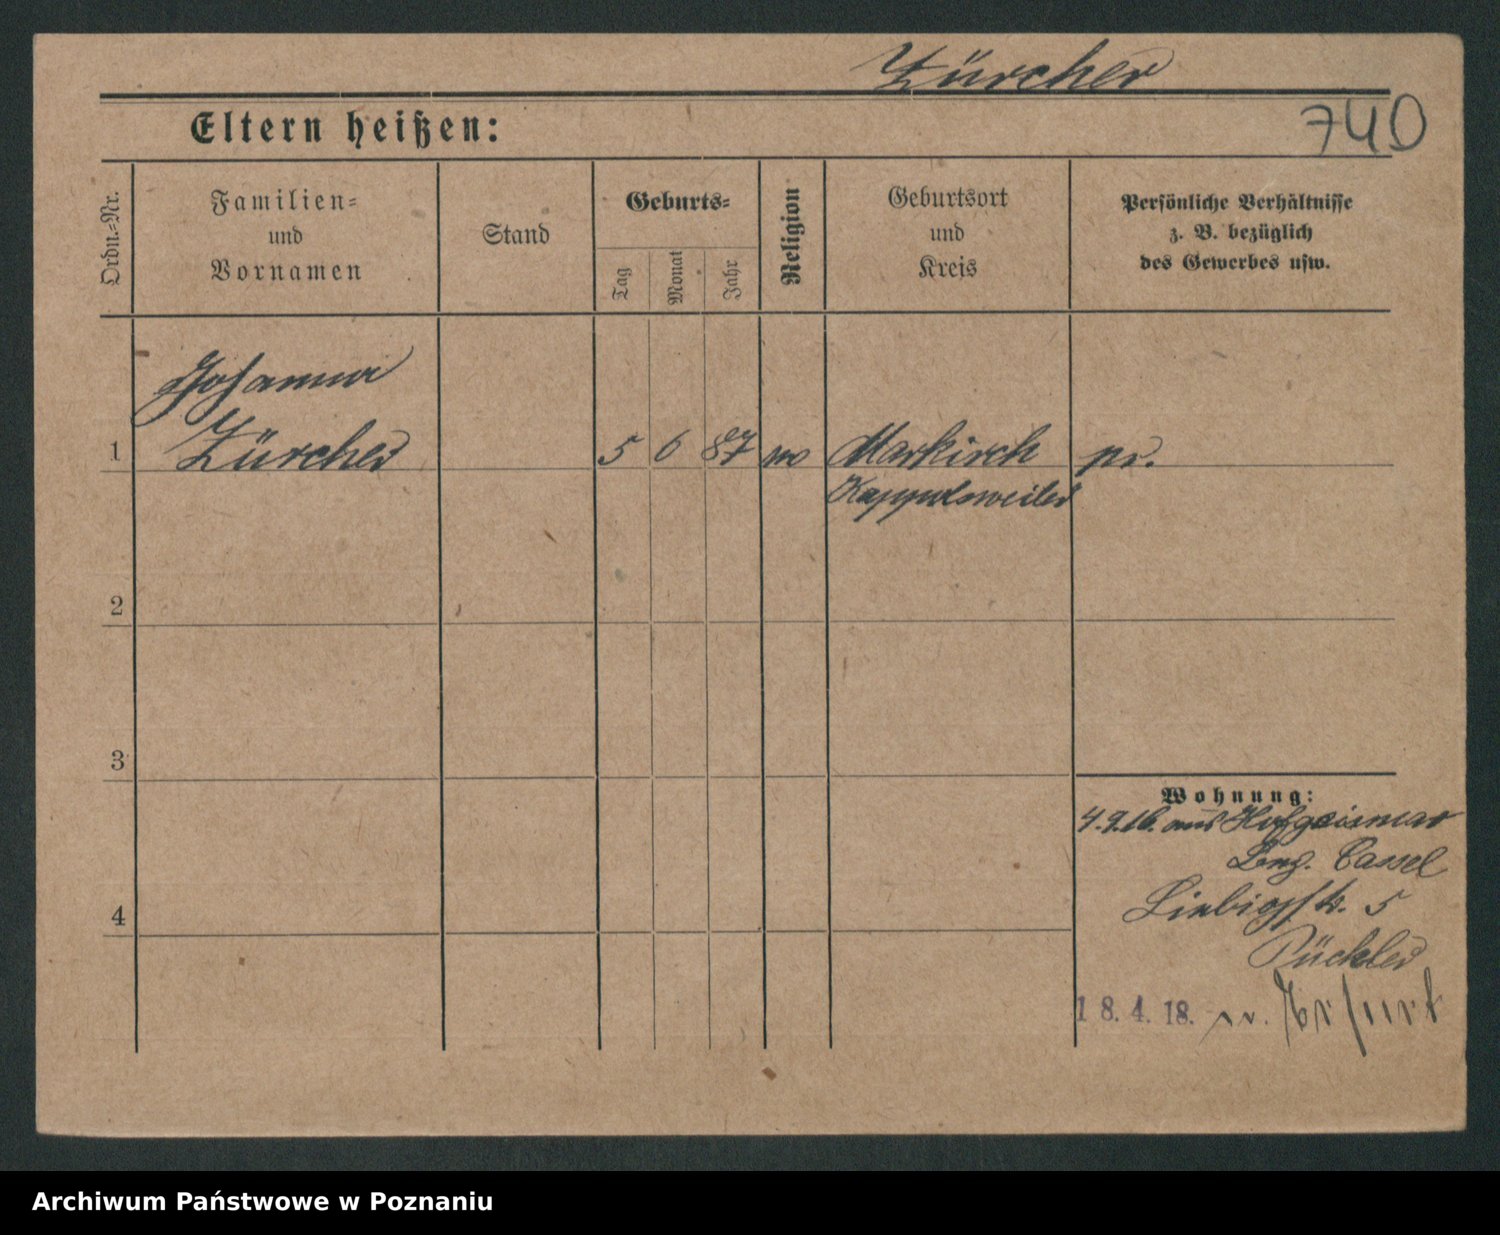 Zürcher
740
Eltern heißen:
Ordn.-Nr.
Familien-
und
Vornamen
Stand
Geburts-
Tag
Monat
Jahr
Religion
Geburtsort
und
Kreis
Persönliche Verhältnisse
z. B. bezüglich
des Gewerbes usw.
Johanna
1 Zürcher 5 6 87 Markirch pr.
Rappolsweiler
2
3
4
Wohnung:
4.9.16. aus Hofgeismar
Cassel
Liebigstr. 5
Pückler
18.4.18. n. Erfurt
Archiwum Państwowe w Poznaniu